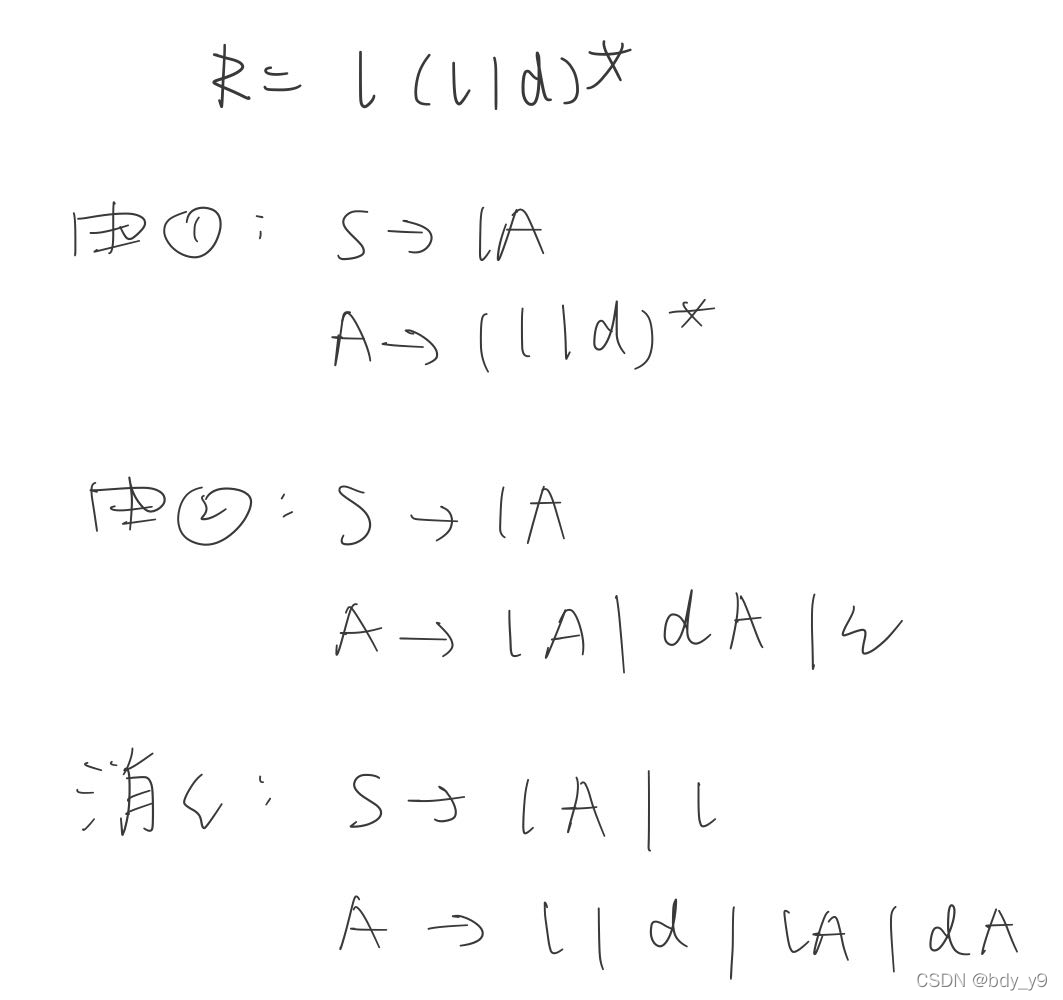 R= l(l|d)*
由①: S→lA
A→(l|d)*
由②: S→lA
A→lA|dA|ε
消ε: S→lA|l
A→l|d|lA|dA
CSDN @bdy_y9